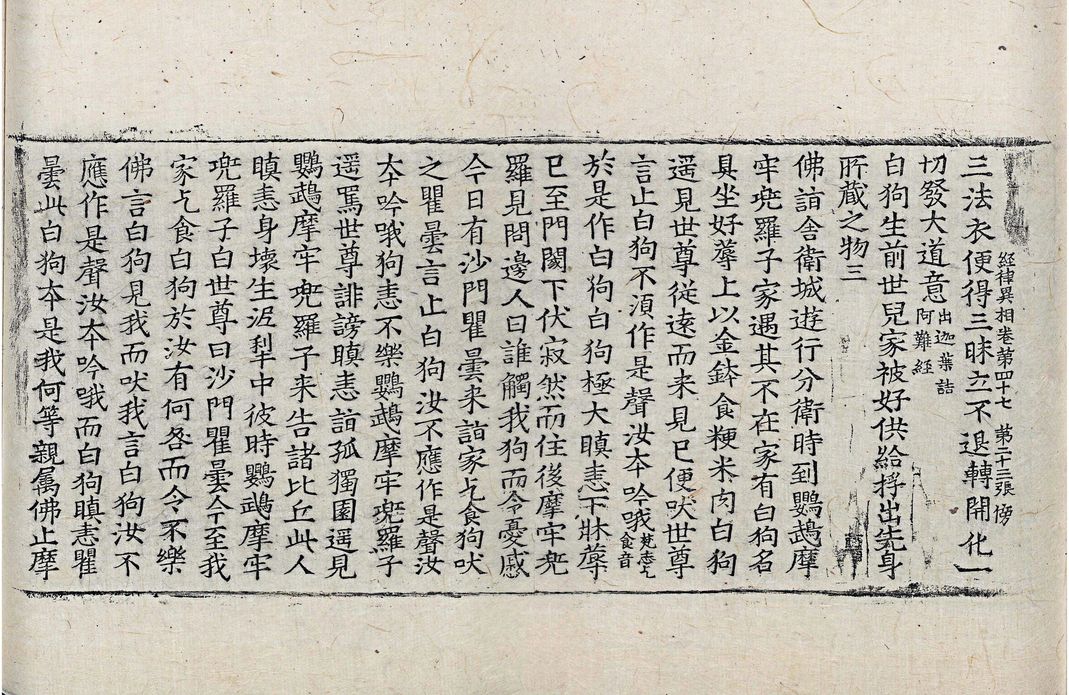 經律異相卷第四十七　第二十三張　傍
三法衣便得三昧立不退轉開化一
切發大道意出迦葉詰阿難經
白狗生前世兒家被好供給捊出先身
所藏之物三
佛詣舍衛城遊行分衛時到鸚鵡摩
牢兠羅子家遇其不在家有白狗名
具坐好蓐上以金鉢食粳米肉白狗
遥見世尊從遠而来見已便吠世尊
言止白狗不湏作是聲汝夲吟哦梵志乞食音
於是作白狗白狗極大瞋恚下牀蓐
已至門閫下伏寂然而住後摩牢兠
羅見問邊人曰誰觸我狗而令憂慼
今日有沙門瞿曇来詣家乞食狗吠
之瞿曇言止白狗汝不應作是聲汝
夲吟哦狗恚不樂鸚鵡摩牢兠羅子
遥罵世尊誹謗瞋恚詣孤獨園遥見
鸚鵡摩牢兠羅子来告諸比丘此人
瞋恚身壊生泥犁中彼時鸚鵡摩牢
兠羅子白世尊曰沙門瞿曇今至我
家乞食白狗於汝有何咎而令不樂
佛言白狗見我而吠我言白狗汝不
應作是聲汝夲吟哦而白狗瞋恚瞿
曇此白狗夲是我何等親属佛止摩